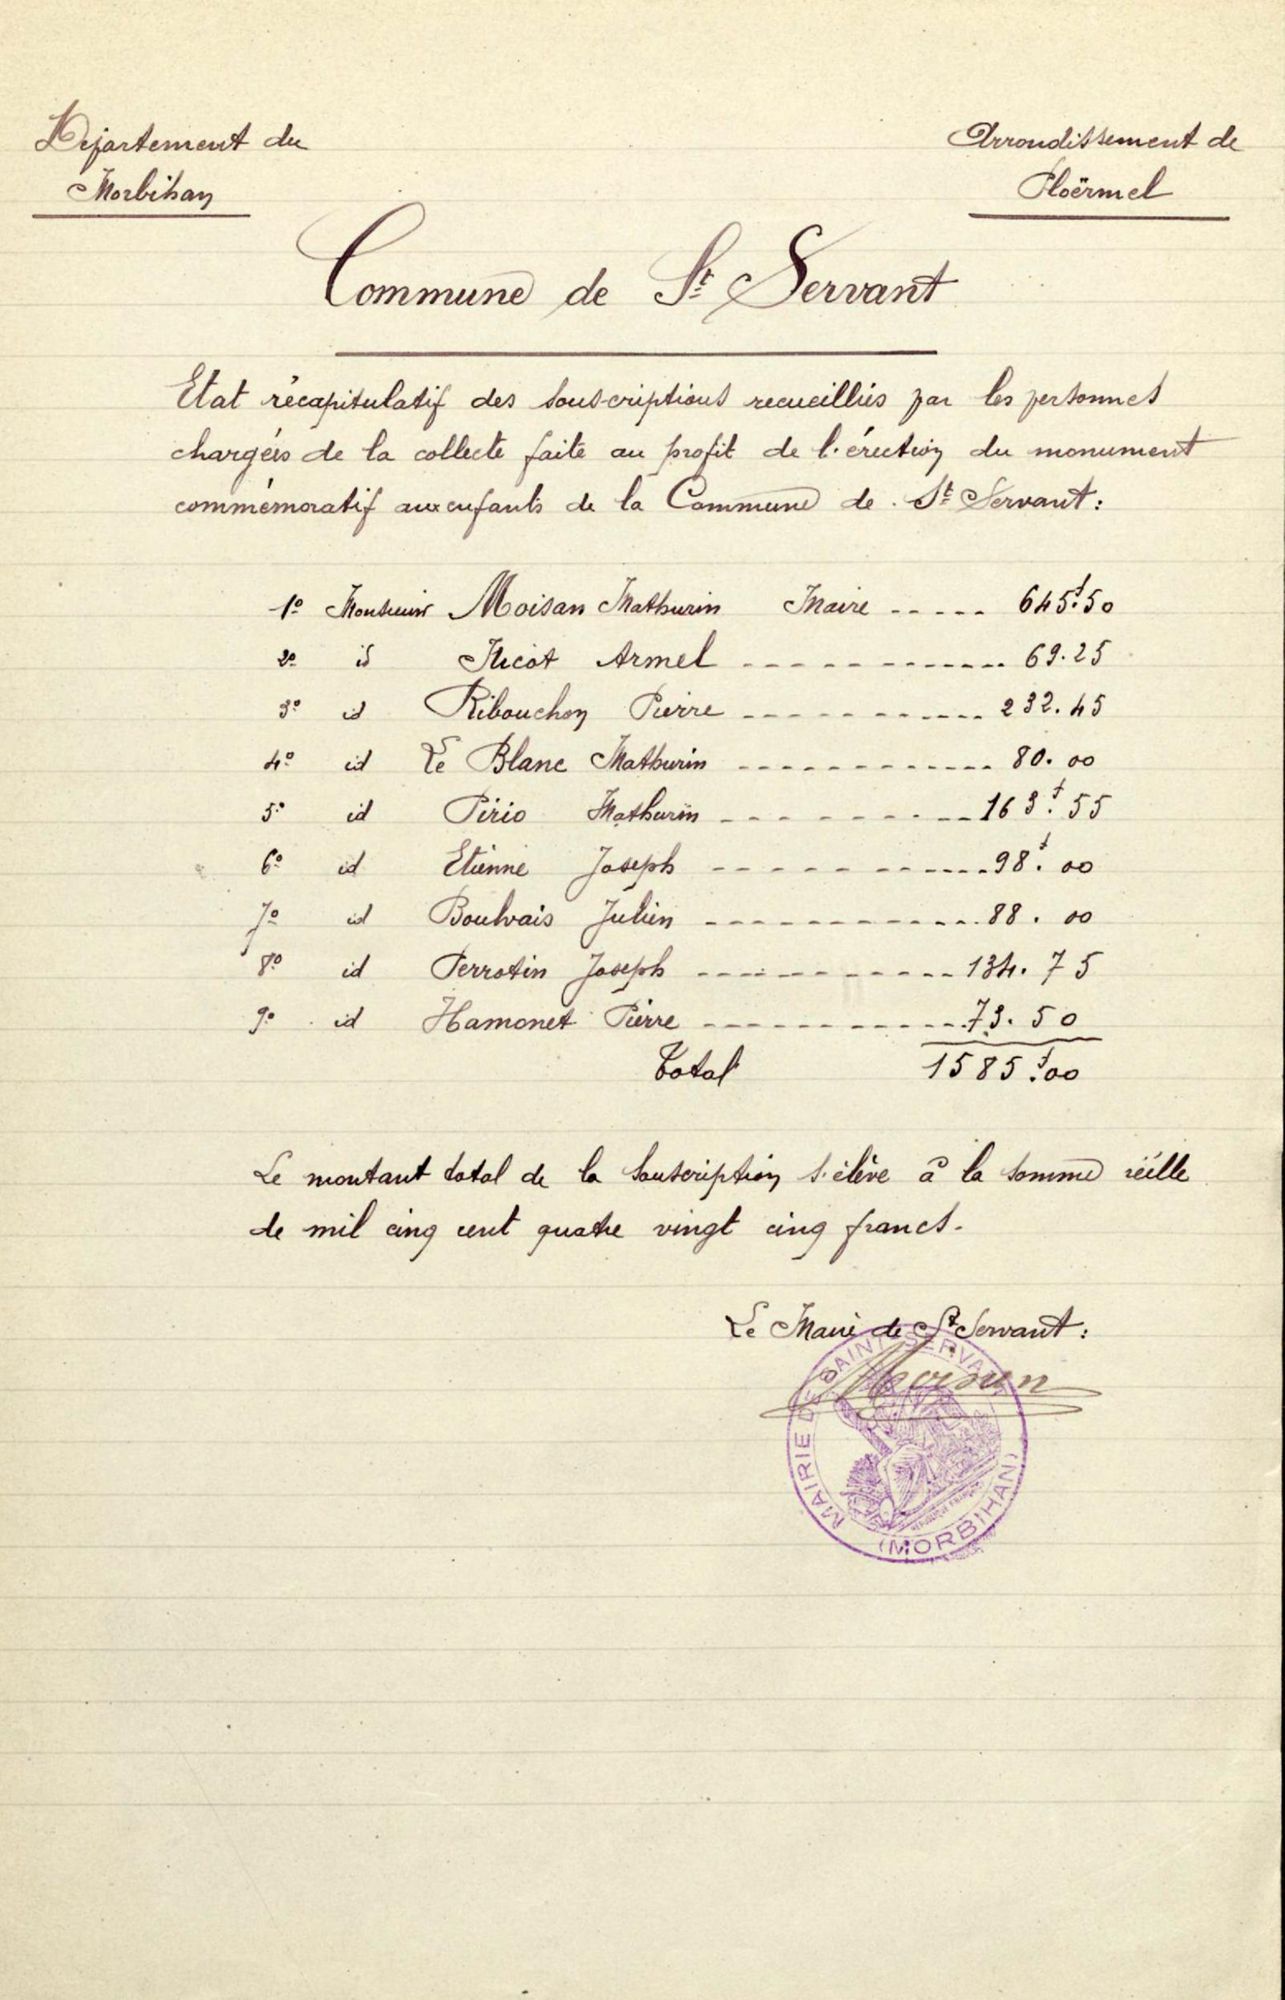 Département du
Morbihan
Arrondissement de
Ploërmel
Commune de St Servant
Etat récapitulatif des souscriptions recueillies par les personnes
chargées de la collecte faite au profit de l'érection du monument
commémoratif aux enfants de la Commune de St Servant :
1° Monsieur Moisan Mathurin Maire ----- 645f.50
2° id Nicot Armel ------------ 69.25
3° id Ribouchon Pierre ----------- 232.45
4° id Le Blanc Mathurin ------------ 80.00
5° id Pirio Mathurin ---------- 163f.55
6° id Etienne Joseph ------------ 98f.00
7° id Boulvais Julien ------------ 88.00
8° id Perrotin Joseph ------------ 134.75
9° id Hamonet Pierre ------------ 73.50
Total 1585f.00
Le montant total de la souscription s'élève à la somme réelle
de mil cinq cent quatre vingt cinq francs.
Le Maire de St Servant :
Moisan
MAIRIE DE SAINT-SERVANT
(MORBIHAN)